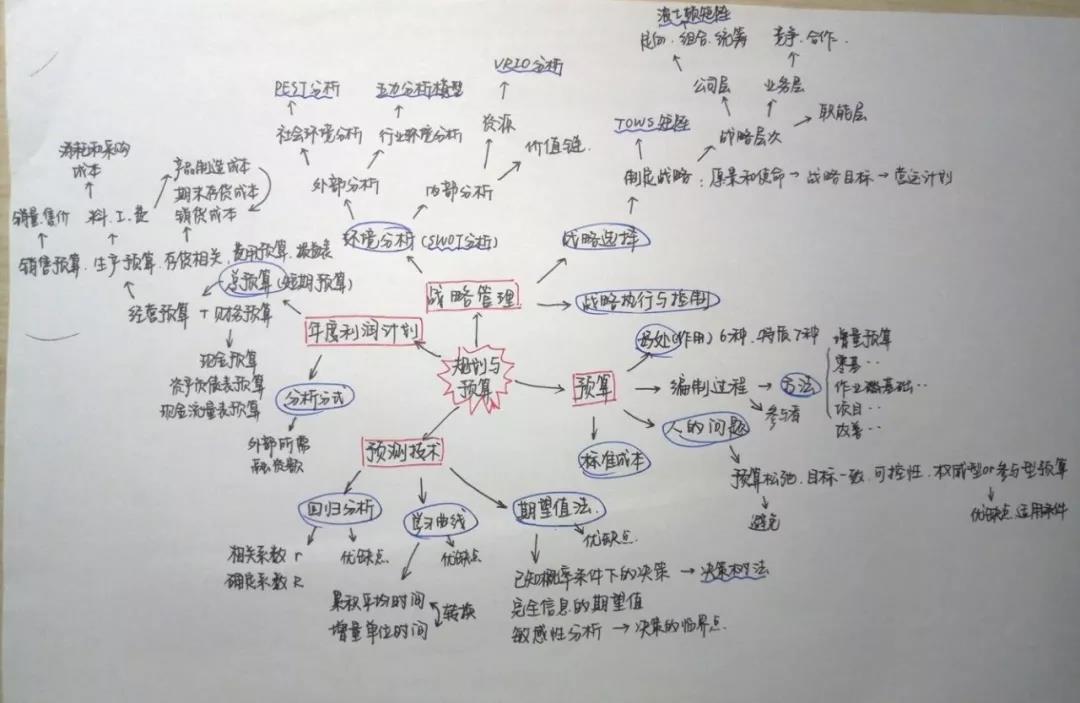 波士顿矩阵
定向．组合．统筹
竞争．合作．
公司层
业务层
职能层
战略层次
VRIO分析
PEST分析
五力分析模型
TOWS矩阵
社会环境分析
行业环境分析
资源
价值链
外部分析
内部分析
制定战略：愿景和使命→战略目标→营运计划
消耗和采购
成本
产品制造成本
期末存货成本
销货成本
销量.售价
料．工．费
环境分析(SWOT分析)
战略选择
销售预算．生产预算．存货相关．费用预算．损益表
总预算(短期预算)
战略管理
战略执行与控制
经营预算 + 财务预算
年度利润计划
规划与
预算
预算
好处(作用) 6种．特质7种
增量预算
零基··
作业基础··
项目··
改善··
编制过程→方法
参与者
现金预算
资产负债表预算
现金流量表预算
分析公式
外部所需
融资数
预测技术
标准成本
人的问题
预算松弛．目标一致．可控性．权威型or参与型预算
避免
优缺点.适用条件
回归分析
学习曲线
期望值法
相关系数 r
确定系数 R
优缺点
优缺点
优缺点．
累积平均时间
增量单位时间
转换
已知概率条件下的决策 → 决策树法
完全信息的期望值
敏感性分析 → 决策的临界点．